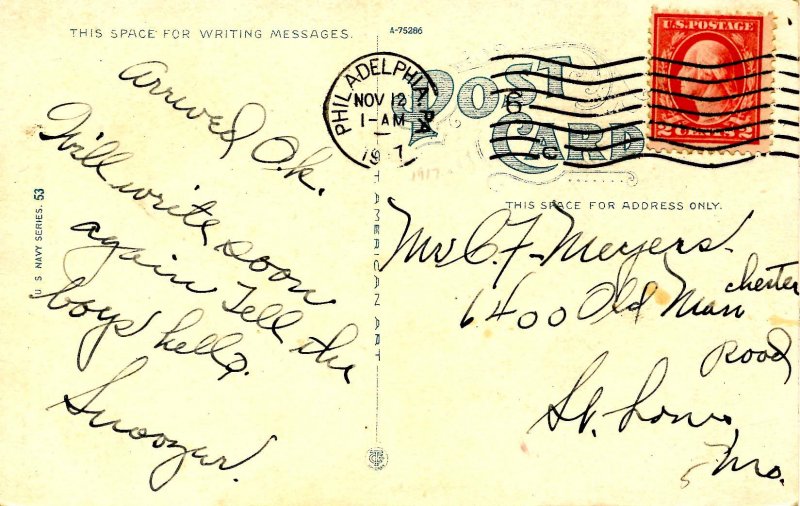 THIS SPACE FOR WRITING MESSAGES.
A-75286
Arrived O.k.
Will write soon
again Tell the
boys hello.
Snoozer.
U S NAVY SERIES. 53
T AMERICAN ART
PHILADELPHIA, PA
NOV 12
1-AM
1917
6
POST
CARD
U.S. POSTAGE
2 CENTS 2
THIS SPACE FOR ADDRESS ONLY.
Mr C. F. Meyers
6400 Old Manchester
Road
St. Louis
Mo.